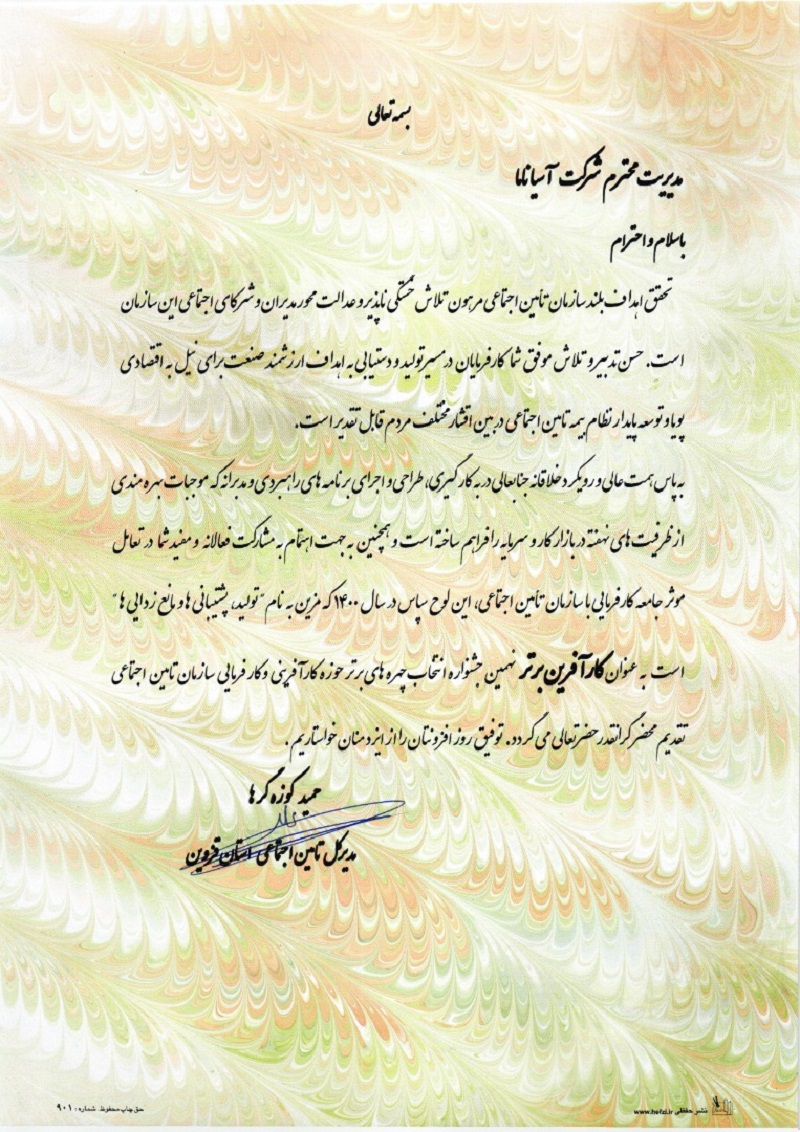 بسمه تعالی
مدیریت محترم شرکت آسیا نما
با سلام و احترام
تحقق اهداف بلند سازمان تأمین اجتماعی مرهون تلاش خستگی ناپذیر و عدالت محور مدیران و شرکای اجتماعی این سازمان
است. حسن تدبیر و تلاش موفق شما کارفرمایان در مسیر تولید و دستیابی به اهداف ارزشمند صنعت برای نیل به اقتصادی
پویا و توسعه پایدار نظام بیمه تامین اجتماعی در بین اقشار مختلف مردم قابل تقدیر است.
به پاس همت عالی و رویکرد خلاقانه جنابعالی در به کارگیری، طراحی و اجرای برنامه های راهبردی و مدبرانه که موجبات بهره مندی
از ظرفیت های نهفته در بازار کار و سرمایه را فراهم ساخته است و همچنین به جهت اهتمام به مشارکت فعالانه و مفید شما در تعامل
موثر جامعه کارفرمایی با سازمان تأمین اجتماعی، این لوح سپاس در سال ۱۴۰۰ که مزین به نام "تولید، پشتیبانی ها و مانع زدایی ها"
است به عنوان کارآفرین برتر نهمین جشنواره انتخاب چهره های برتر حوزه کارآفرینی و کارفرمایی سازمان تامین اجتماعی
تقدیم محضر گرانقدر حضرتعالی می گردد. توفیق روز افزونتان را از ایزد منان خواستاریم.
حمید کوزه گرها
مدیرکل تامین اجتماعی استان قزوین
نشر حفظی www.hefzi.ir
حق چاپ محفوظ شماره: ۹۰۱